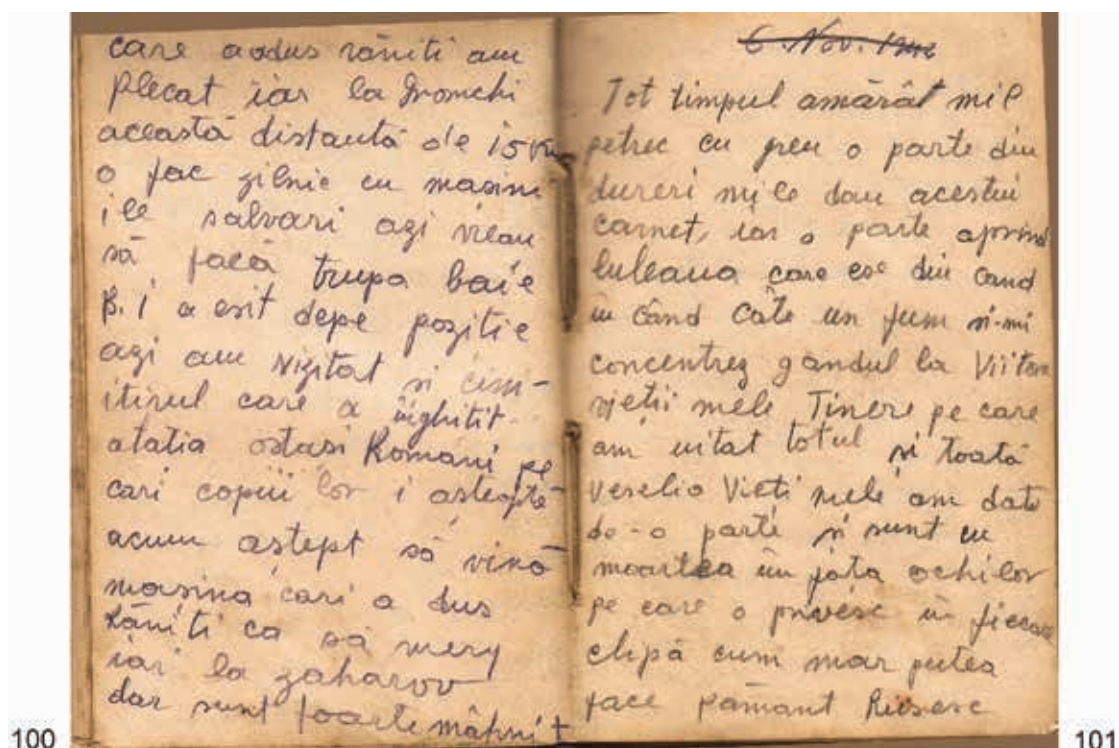 care aodus răniti am
plecat iar la Gromchi
această distantă de 15 Km
o fac zilnic cu masini
ile salvari azi vreau
să facă trupa baie
B. i a esit depe pozitie
azi am vizitat si cimi-
itirul care a inghitit
atatia ostasi Romani pe
cari copiii lor i asteaptă
acum astept să vină
masina cari a dus
Răniti ca să merg
iar la zaharov
dar sunt foarte mâhnit
100
6. Nov. 1942
Tot timpul amărât mil
petrec cu greu o parte din
dureri mi le dau acestui
carnet, iar o parte aprind
luleaua care ese din cand
in când câte un fum si-mi
concentrez gandul la Viitoru
vietii mele Tinere pe care
am uitat totul si toată
Veselia Vieti mele am dato
de-o parte si sunt cu
moartea in fata ochilor
pe care o privesc in fiecare
clipă cum mar putea
face pămant Rusesc
101